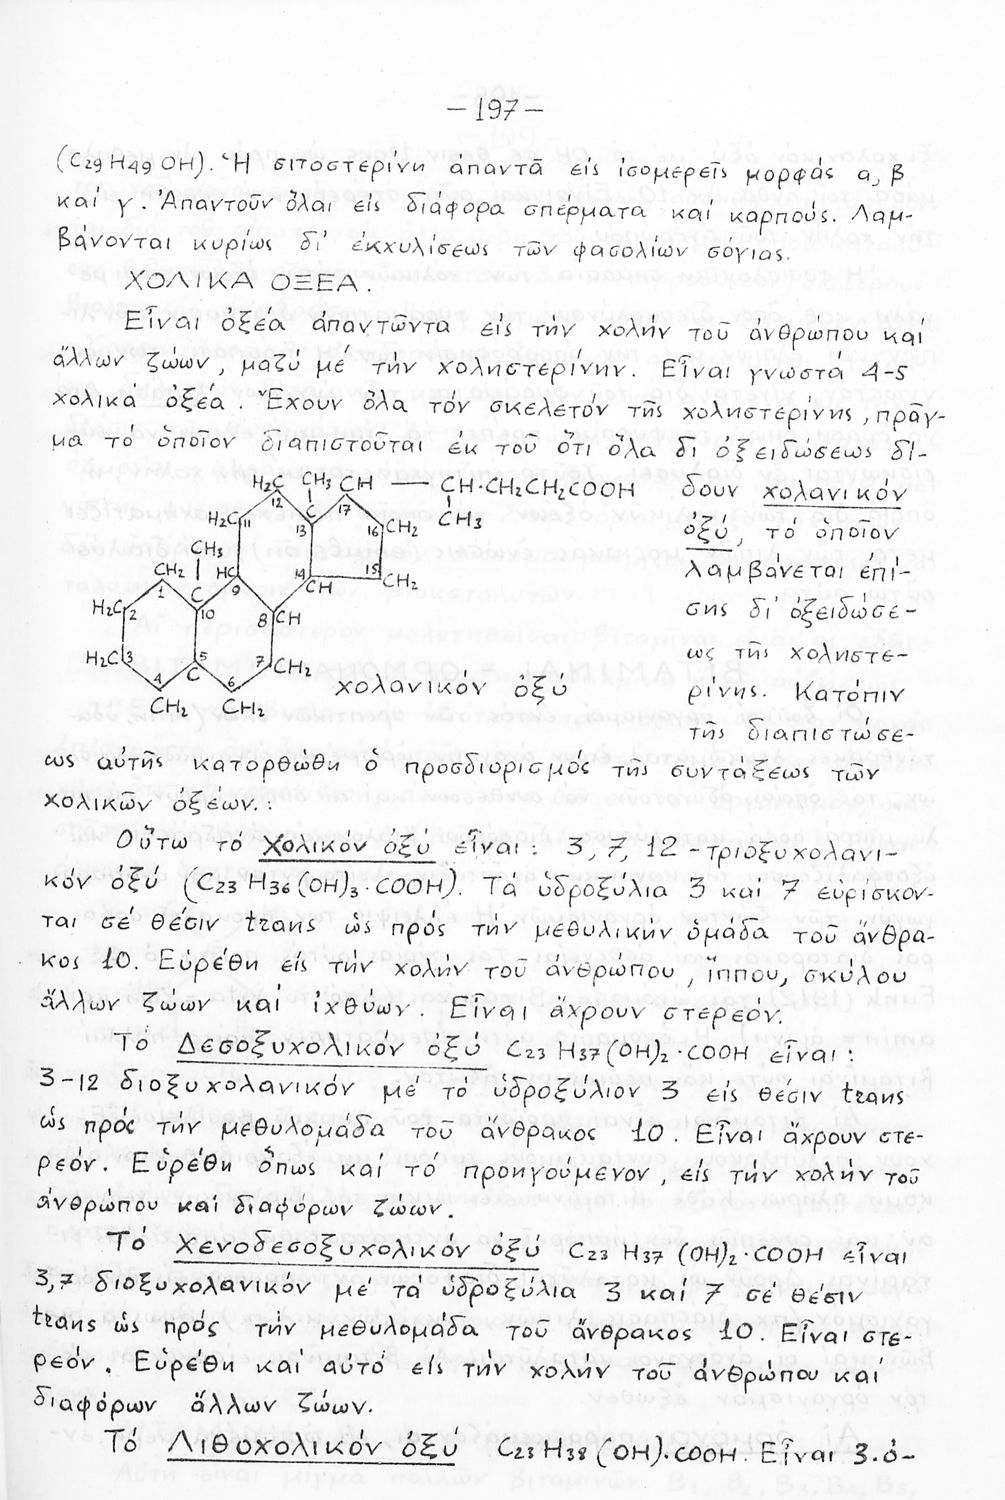 - 197 -
(C29 H49 OH). Ἡ σιτοστερίνη ἀπαντᾶ εἰς ἰσομερεῖς μορφάς α, β
καί γ. Ἀπαντοῦν ὅλαι εἰς διάφορα σπέρματα καί καρπούς. Λαμ-
βάνονται κυρίως δι' ἐκχυλίσεως τῶν φασολίων σόγιας.
ΧΟΛΙΚΑ ΟΞΕΑ.
Εἶναι ὀξέα ἀπαντῶντα εἰς τήν χολήν τοῦ ἀνθρώπου καί
ἄλλων ζώων, μαζύ μέ τήν χοληστερίνην. Εἶναι γνωστά 4-5
χολικά ὀξέα. Ἔχουν ὅλα τόν σκελετόν τῆς χοληστερίνης, πράγ-
μα τό ὁποῖον διαπιστοῦται ἐκ τοῦ ὅτι ὅλα δι ὀξειδώσεως δί-
δουν χολανικόν
ὀξύ, τό ὁποῖον
λαμβάνεται ἐπί-
σης δι' ὀξειδώσε-
ως τῆς χοληστε-
ρίνης. Κατόπιν
τῆς διαπιστώσε-
H2C CH3 CH CH·CH2CH2COOH
12 C 17
H2C 11 13 16 CH2 CH3
CH3
CH2 C HC 9 14 CH 15 CH2
1
H2C 2 10 8 CH
H2C 3 5 C 7 CH2
4 6
CH2 CH2
χολανικόν ὀξύ
ως αὐτῆς κατορθώθη ὁ προσδιορισμός τῆς συντάξεως τῶν
χολικῶν ὀξέων.:
Οὕτω τό Χολικόν ὀξύ εἶναι: 3, 7, 12 -τριοξυχολανι-
κόν ὀξύ (C23 H36 (OH)3·COOH). Τά ὑδροξύλια 3 καί 7 εὑρίσκον-
ται σέ θέσιν trans ὡς πρός τήν μεθυλικήν ὁμάδα τοῦ ἄνθρα-
κος 10. Εὑρέθη εἰς τήν χολήν τοῦ ἀνθρώπου, ἵππου, σκύλου
ἄλλων ζώων καί ἰχθύων. Εἶναι ἄχρουν στερεόν.
Τό Δεσοξυχολικόν ὀξύ C23 H37 (OH)2·COOH εἶναι:
3-12 διοξυχολανικόν μέ τό ὑδροξύλιον 3 εἰς θέσιν trans
ὡς πρός τήν μεθυλομάδα τοῦ ἄνθρακος 10. Εἶναι ἄχρουν στε-
ρεόν. Εὑρέθη ὅπως καί τό προηγούμενον, εἰς τήν χολήν τοῦ
ἀνθρώπου καί διαφόρων ζώων.
Τό Χενοδεσοξυχολικόν ὀξύ C23 H37 (OH)2·COOH εἶναι
3,7 διοξυχολανικόν μέ τά ὑδροξύλια 3 καί 7 σέ θέσιν
trans ὡς πρός τήν μεθυλομάδα τοῦ ἄνθρακος 10. Εἶναι στε-
ρεόν. Εὑρέθη καί αὐτό εἰς τήν χολήν τοῦ ἀνθρώπου καί
διαφόρων ἄλλων ζώων.
Τό Λιθοχολικόν ὀξύ C23 H38 (OH)·COOH. Εἶναι 3.ὀ-